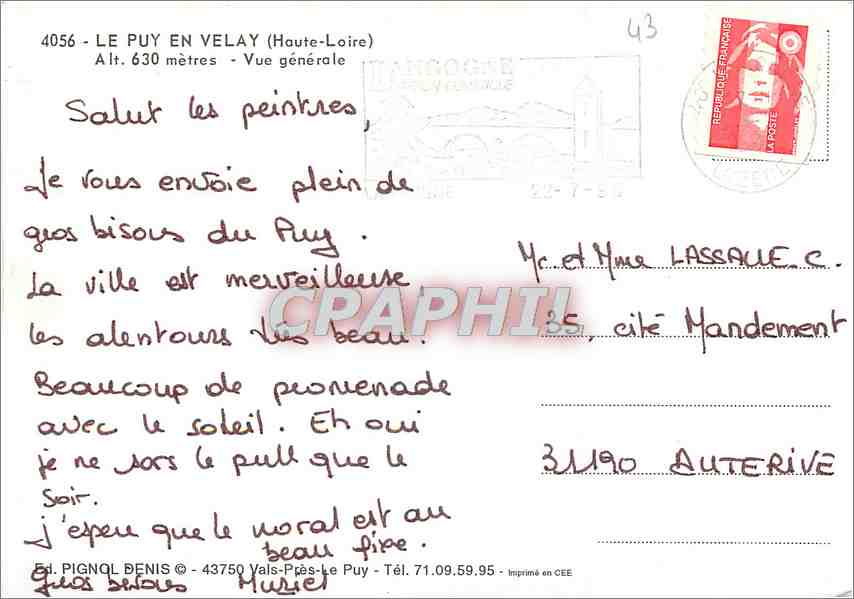 4056 - LE PUY EN VELAY (Haute-Loire)
Alt. 630 mètres - Vue générale
43
LANGOGNE
22-7-96
LOZERE
REPUBLIQUE FRANÇAISE
LA POSTE
Salut les peintres,
Je vous envoie plein de
gros bisous du Puy.
La ville est merveilleuse,
les alentours très beau!
Beaucoup de promenade
avec le soleil. Eh oui
je ne sors le pull que le
soir.
J'espere que le moral est au
beau fixe.
Gros bisous Muriel
Mr. et Mme LASSALLE. C.
35, cité Mandement
31190 AUTERIVE
CPAPHIL
Ed. PIGNOL DENIS © - 43750 Vals-Près-Le Puy - Tél. 71.09.59.95 - Imprimé en CEE